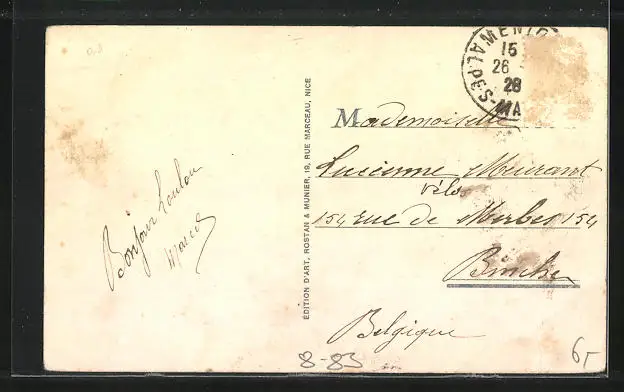 Bonjour Loulou
Marcel
ÉDITION D'ART, ROSTAN & MUNIER, 19, RUE MARCEAU, NICE
MENTO
15
26
28
ALPES-MA
Mademoiselle
Lucienne Meurant
vélos
154 rue de Merbes 154
Binche
Belgique
8-83